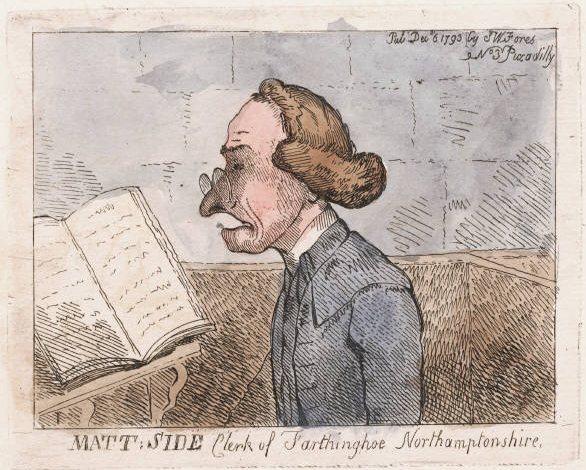 Pub Decr 6 1793 by S W Fores
No 3 Piccadilly
MATT: SIDE Clerk of Farthinghoe Northamptonshire,